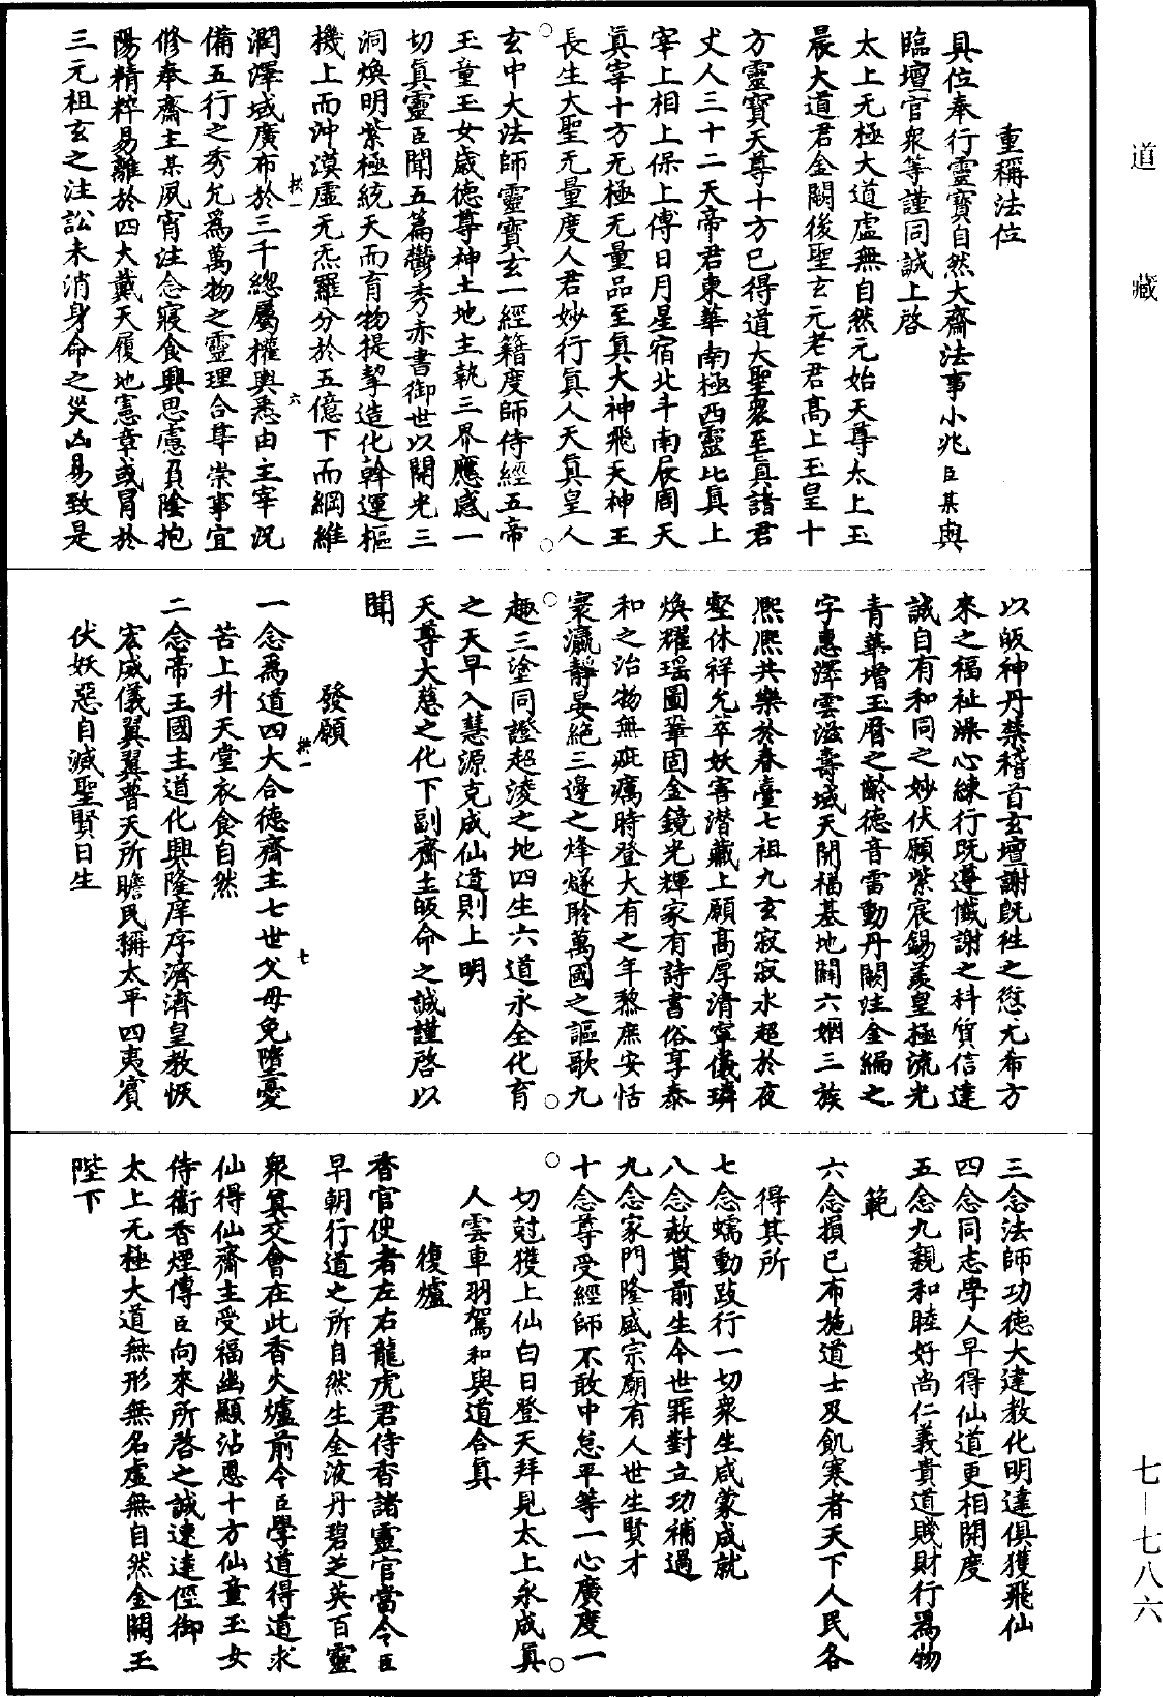 道藏
七—七八六
重稱法位
具位奉行靈寶自然大齋法事小兆臣某與
臨壇官衆等謹同誠上啓
太上无極大道虛無自然元始天尊太上玉
晨大道君金闕後聖玄元老君高上玉皇十
方靈寶天尊十方已得道大聖衆至眞諸君
丈人三十二天帝君東華南極西靈北眞上
宰上相上保上傅日月星宿北斗南辰周天
眞宰十方无極无量品至眞大神飛天神王
長生大聖无量度人君妙行眞人天眞皇人
玄中大法師靈寶玄一經籍度師侍經五帝
玉童玉女威德尊神土地主執三界應感一
切眞靈臣聞五篇鬱秀赤書御世以開光三
洞煥明紫極統天而育物提挈造化斡運樞
機上而沖漠虛无炁羅分於五億下而綱維
拱一 六
濶澤域廣布於三千總屬權輿悉由主宰況
備五行之秀允爲萬物之靈理合尊崇事宜
修奉齋主某夙宵注念寢食興思慮負陰抱
陽精粹易離於四大戴天履地憲章或冒於
三元祖玄之注訟未消身命之災凶易致是
以皈神丹禁稽首玄壇謝旣徃之愆尤希方
來之福祉澡心練行旣遵懺謝之科質信達
誠自有和同之妙伏願紫宸錫羨皇極流光
青華增玉曆之齡德音雷動丹闕注金編之
字惠澤雲滋壽域天開福基地闢六姻三族
熙熙共樂於春臺七祖九玄寂寂永超於夜
壑休祥允萃妖害潛藏上願高厚清寧儀璘
煥耀瑶圖鞏固金鏡光輝家有詩書俗享泰
和之治物無疵癘時登大有之年黎庶安恬
寰瀛靜晏絕三邊之烽燧聆萬國之謳歌九
趣三塗同證超淩之地四生六道永全化育
之天早入慧源克成仙道則上明
天尊大慈之化下副齋主皈命之誠謹啓以
聞
發願
拱一 七
一念爲道四大合德齋主七世父母免墮憂
苦上升天堂衣食自然
二念帝王國主道化興隆庠序濟濟皇教恢
宏威儀翼翼普天所瞻民稱太平四夷賓
伏妖惡自滅聖賢日生
三念法師功德大建教化明達俱獲飛仙
四念同志學人早得仙道更相開度
五念九親和睦好尚仁義貴道賤財行爲物
範
六念損已布施道士及飢寒者天下人民各
得其所
七念蠕動跂行一切衆生咸蒙成就
八念赦貰前生今世罪對立功補過
九念家門隆盛宗廟有人世生賢才
十念尊受經師不敢中怠平等一心廣度一
切尅獲上仙白日登天拜見太上永成眞
人雲車羽駕和與道合眞
復爐
香官使者左右龍虎君侍香諸靈官當令臣
早朝行道之所自然生金液丹碧芝英百靈
衆眞交會在此香火爐前令臣學道得道求
仙得仙齋主受福幽顯沾恩十方仙童玉女
侍衞香煙傳臣向來所啓之誠速達徑御
太上无極大道無形無名虛無自然金闕玉
陛下